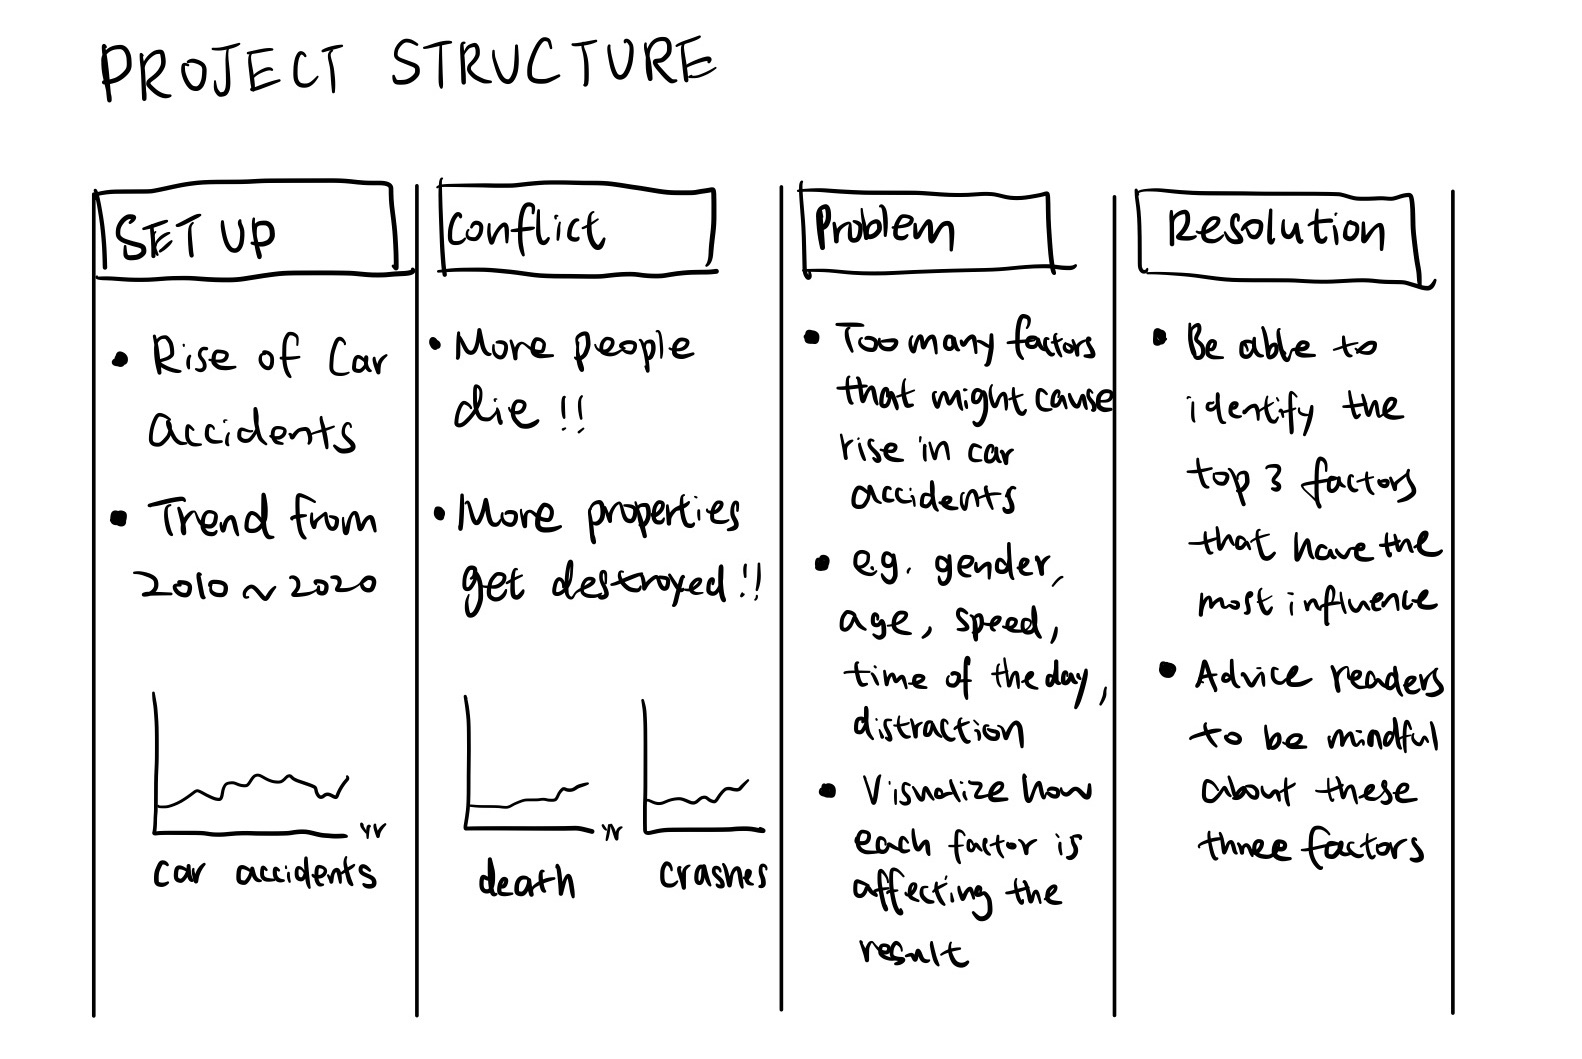 PROJECT STRUCTURE
SET UP
• Rise of Car
accidents
• Trend from
2010 ~ 2020
yr
car accidents
Conflict
• More people
die !!
• More properties
get destroyed !!
yr
death
crashes
Problem
• Too many factors
that might cause
rise in car
accidents
• e.g. gender,
age, speed,
time of the day,
distraction
• Visualize how
each factor is
affecting the
result
Resolution
• Be able to
identify the
top 3 factors
that have the
most influence
• Advice readers
to be mindful
about these
three factors